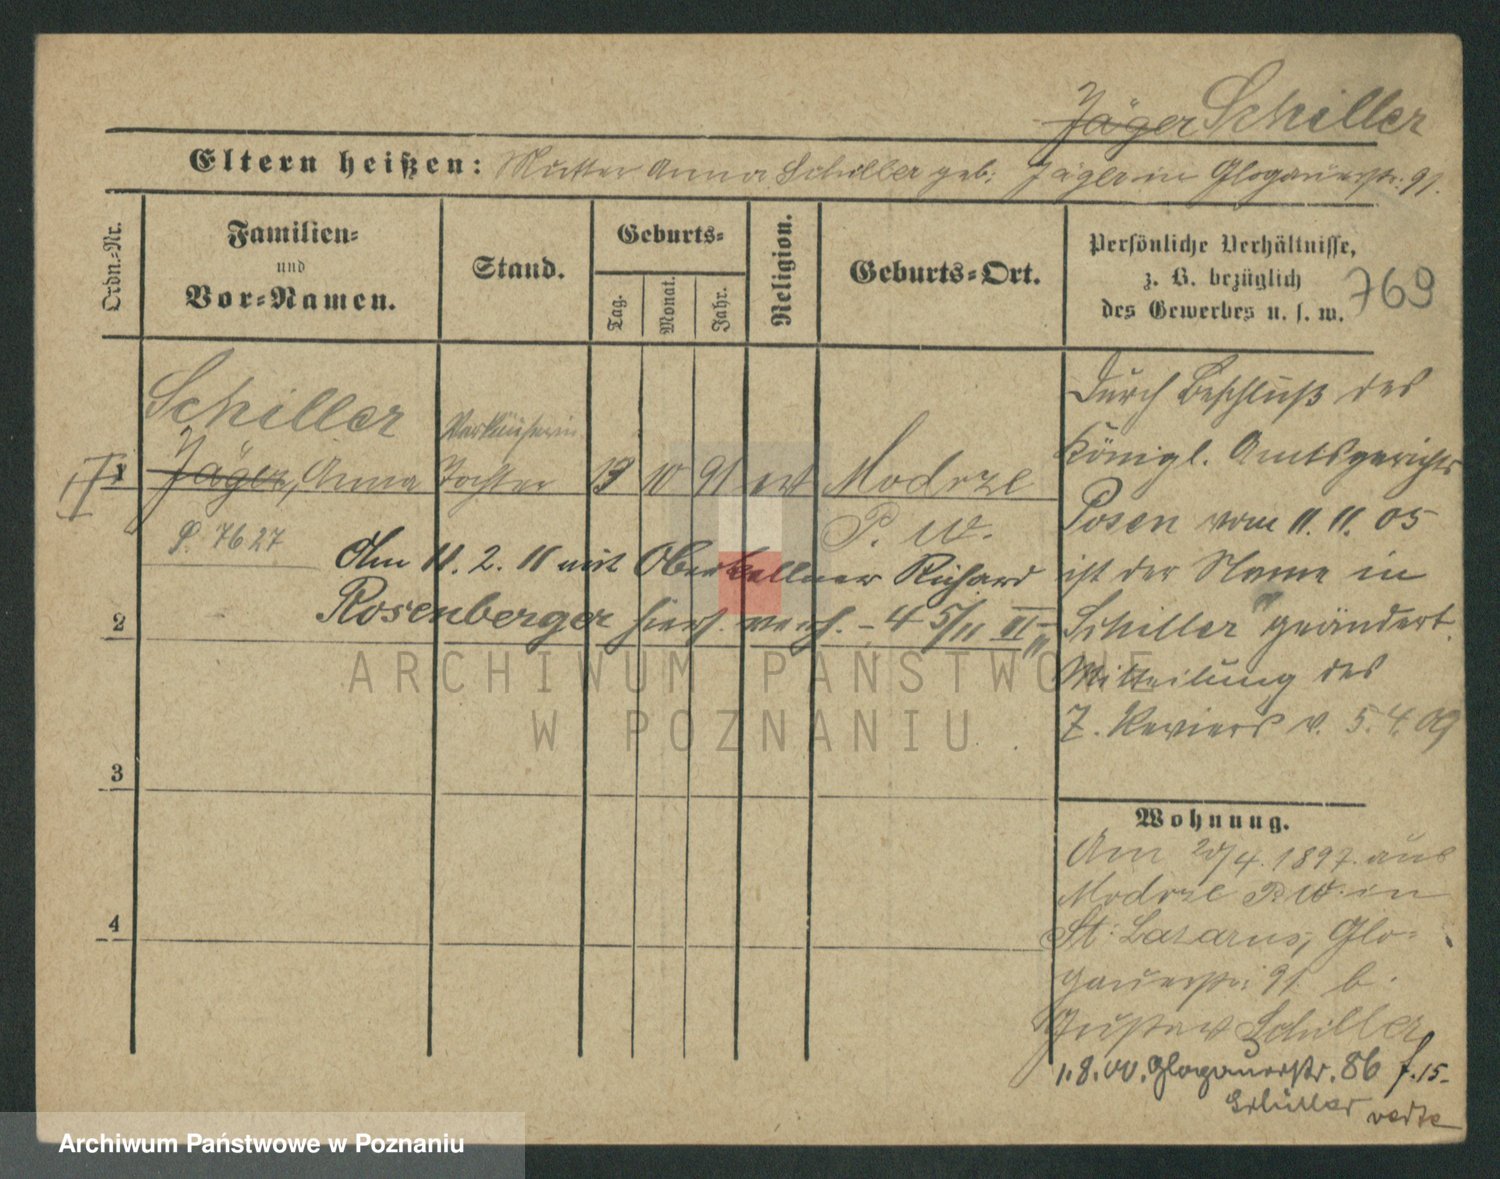 Jäger Schiller
Eltern heißen: Mutter Anna Schiller geb. Jäger in Glogauerstr. 91.
Ordn.-Nr.
Familien-
und
Vor-Namen.
Stand.
Geburts-
Tag.
Monat.
Jahr.
Religion.
Geburts-Ort.
Persönliche Verhältnisse,
z. B. bezüglich
des Gewerbes u. s. w.
769
Schiller
Verkäuferin
1 Jäger, Anna Tochter 19 10 91 ev Modrze
P. W.
P. 7627
Am 11. 2. 11 mit Oberkellner Richard
Rosenberger hiers. verh. – 45/11 III
2
3
4
Durch Beschluß des
Königl. Amtsgerichts
Posen vom 11. 11. 05
ist der Name in
"Schiller" geändert.
Mitteilung des
7. Reviers v. 5. 4. 09
Wohnung.
Am /4. 1897 aus
Modrze P. W. in
St. Lazarus, Glo-
gauerstr. 91 b.
Gustav Schiller
1. 8. 00. Glogauerstr. 86 f. 15.
Schiller
verte
ARCHIWUM PAŃSTWOWE
W POZNANIU
Archiwum Państwowe w Poznaniu